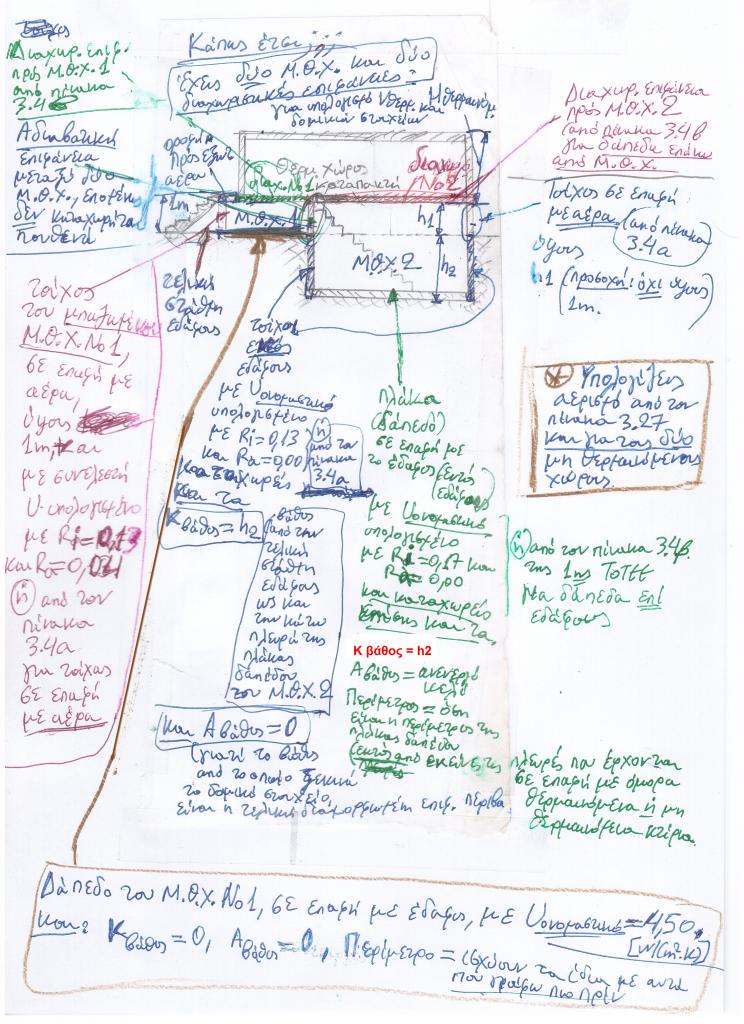 Κάπως έτσι;;;
Έχεις δύο Μ.Θ.Χ. και δύο
διαχωριστικές επιφάνειες:
για υπολογισμό Uθερμ. και
δομικών στοιχείων
Διαχωρ. επιφ.
πρός Μ.Θ.Χ.1
από πίνακα
3.4
Αδιαβατική
επιφάνεια
μεταξύ δύο
Μ.Θ.Χ., επομένως
δεν καταχωρείται
πουθενά
οροφή
προς εξωτ.
αέρα
1m
Θερμ. χώρος
διαχ. Νο1 καταπακτή
διαχωρ
Νο2
Μ.Θ.Χ.1
Μ.Θ.Χ.2
h1
h2
Διαχωρ. επιφάνεια
πρός Μ.Θ.Χ.2
(από πίνακα 3.4β
για δάπεδα επάνω
από Μ.Θ.Χ.
Τοίχος σε επαφή
με αέρα (από πίνακα
3.4α)
ύψους
h1 (προσοχή: όχι ύψους
1m.
τοίχος
του μπαζωμένου
Μ.Θ.Χ. Νο1,
σε επαφή με
αέρα,
ύψους
1m, και
με συνελεστή
U υπολογισμένο
με Ri=0,13
και Ra=0,04
ή από τον
πίνακα
3.4α
για τοίχους
σε επαφή
με αέρα
τελική
στάθμη
εδάφους
τοίχοι
εντός
εδάφους
με Uονομαστικό
υπολογισμένο
με Ri=0,13
και Ra=0,00
ή
από τον
πίνακα
3.4α
καταχωρείς
και τα
Κ βάθος = h2
βάθος
από την
τελική
στάθμη
εδάφους
ως και
την κάτω
πλευρά της
πλάκας
δαπέδου
του Μ.Θ.Χ.2
και Α βάθος = 0
(γιατί το βάθος
από το οποίο ξεκινά
το δομικό στοιχείο,
είναι η τελική διαμορφωμένη επιφ. περιβά
πλάκα
(δάπεδο)
σε επαφή με
το έδαφος (εντός
εδάφους)
με Uονομαστικό
υπολογισμένο
με Ri=0,17 και
Ra=0,00
και καταχωρείς
επίσης και τα
Κ βάθος = h2
Α βάθος = ανενεργό
κελί
Περίμετρος = όση
είναι η περίμετρος της
πλάκας δαπέδου
(εκτός από εκείνες τις
πλευρές που έρχονται
σε επαφή με όμορα
θερμαινόμενα ή μη
θερμαινόμενα κτίρια.
ή από τον πίνακα 3.4β
της 1ης ΤΟΤΕΕ
για δάπεδα επί
εδάφους
* Υπολογίζεις
αερισμό από τον
πίνακα 3.27
και για τους δύο
μη θερμαινόμενους
χώρους
Δάπεδο του Μ.Θ.Χ. Νο1, σε επαφή με έδαφος, με Uονομαστικό=4,50
[W/(m².K)]
και: Κ βάθος = 0, Α βάθος = 0, Περίμετρο = ισχύουν τα ίδια με αυτά
που γράφω πιο πρίν